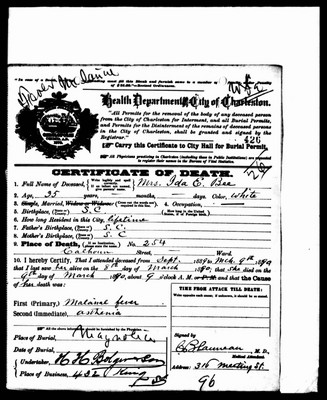 Health Department, City of Charleston.
All Permits for the removal of the body of any deceased person
from the City of Charleston for Interment, and all Burial Permits,
and Permits for the Disinterment of the remains of deceased persons
in the City of Charleston, shall be granted and signed by the
Registrar.
426
Carry this Certificate to City Hall for Burial Permit.
All Physicians practicing in Charleston (including those in Public Institutions) are requested to
register their names in the Bureau of Vital Statistics.
CERTIFICATE OF DEATH.
1. Full Name of Deceased, Mrs. Ida E. Bee
2. Age, 35 years, months, days. Color, white
3. Single, Married, Widow or Widower 4. Occupation,
5. Birthplace, S.C.
6. How long Resident in this City, lifetime
7. Father's Birthplace, S.C.
8. Mother's Birthplace, S.C.
9. Place of Death, No. 254
Calhoun Street, Ward.
10. I hereby Certify, That I attended deceased from Sept. 1889 to Mch. 9th 1890
that I last saw her alive on the 8th day of March 1890, that she died on the
9th day of March 1890, about 9 o'clock A.M. and that the Cause
of her death was:
First (Primary) Malarial fever
Second (Immediate), asthenia
TIME FROM ATTACK TILL DEATH:
Write opposite each cause, if unknown, it is to be so stated.
Place of Burial, Magnolia
Date of Burial,
Undertaker,
Place of Business, 432 King
Signed by
M.D.
Medical Attendant.
Address: 316 Meeting St.
96